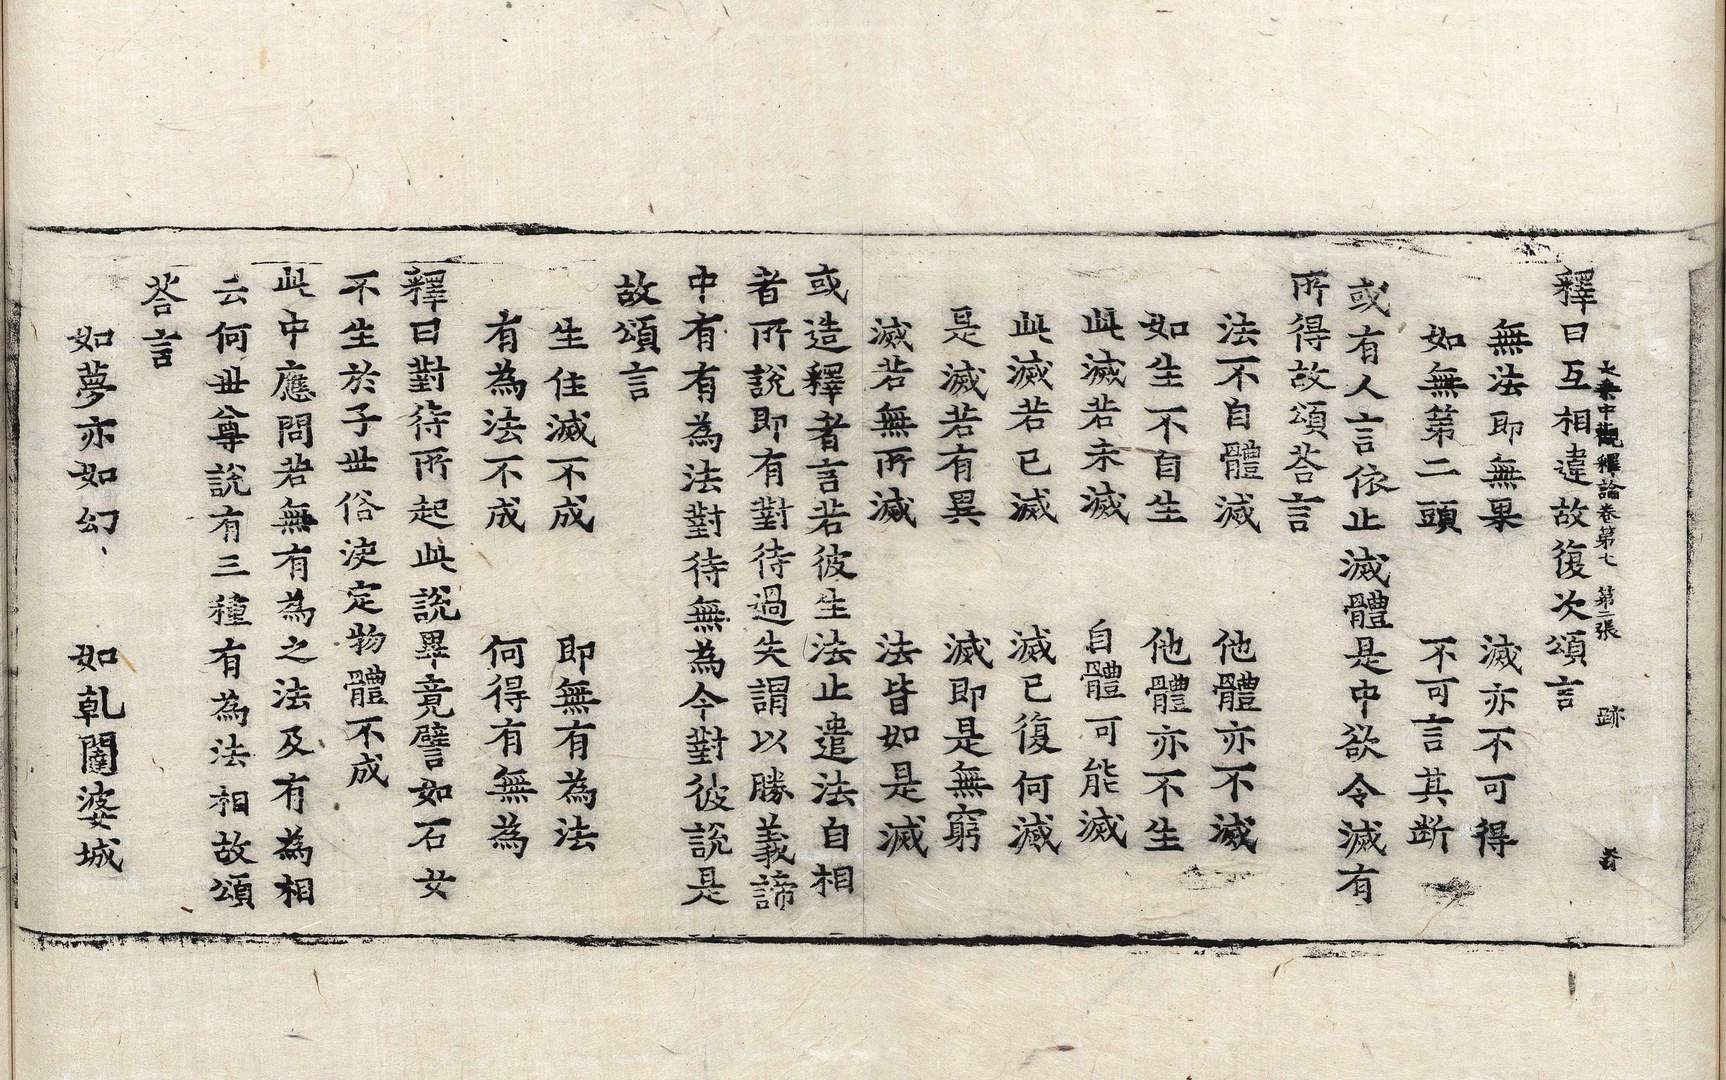 大乗中觀釋論卷第七 第二張 跡
釋曰互相違故復次頌言
無法即無果 滅亦不可得
如無第二頭 不可言其断
或有人言依止滅體是中欲令滅有
所得故頌荅言
法不自體滅 他體亦不滅
如生不自生 他體亦不生
此滅若未滅 自體可能滅
此滅若已滅 滅已復何滅
是滅若有異 滅即是無窮
滅若無所滅 法皆如是滅
或造釋者言若彼生法止遣法自相
者所說即有對待過失謂以勝義諦
中有有為法對待無為今對彼說是
故頌言
生住滅不成 即無有為法
有為法不成 何得有無為
釋曰對待所起此說畢竟譬如石女
不生於子世俗決定物體不成
此中應問若無有為之法及有為相
云何世尊說有三種有為法相故頌
荅言
如夢亦如幻 如乹闥婆城